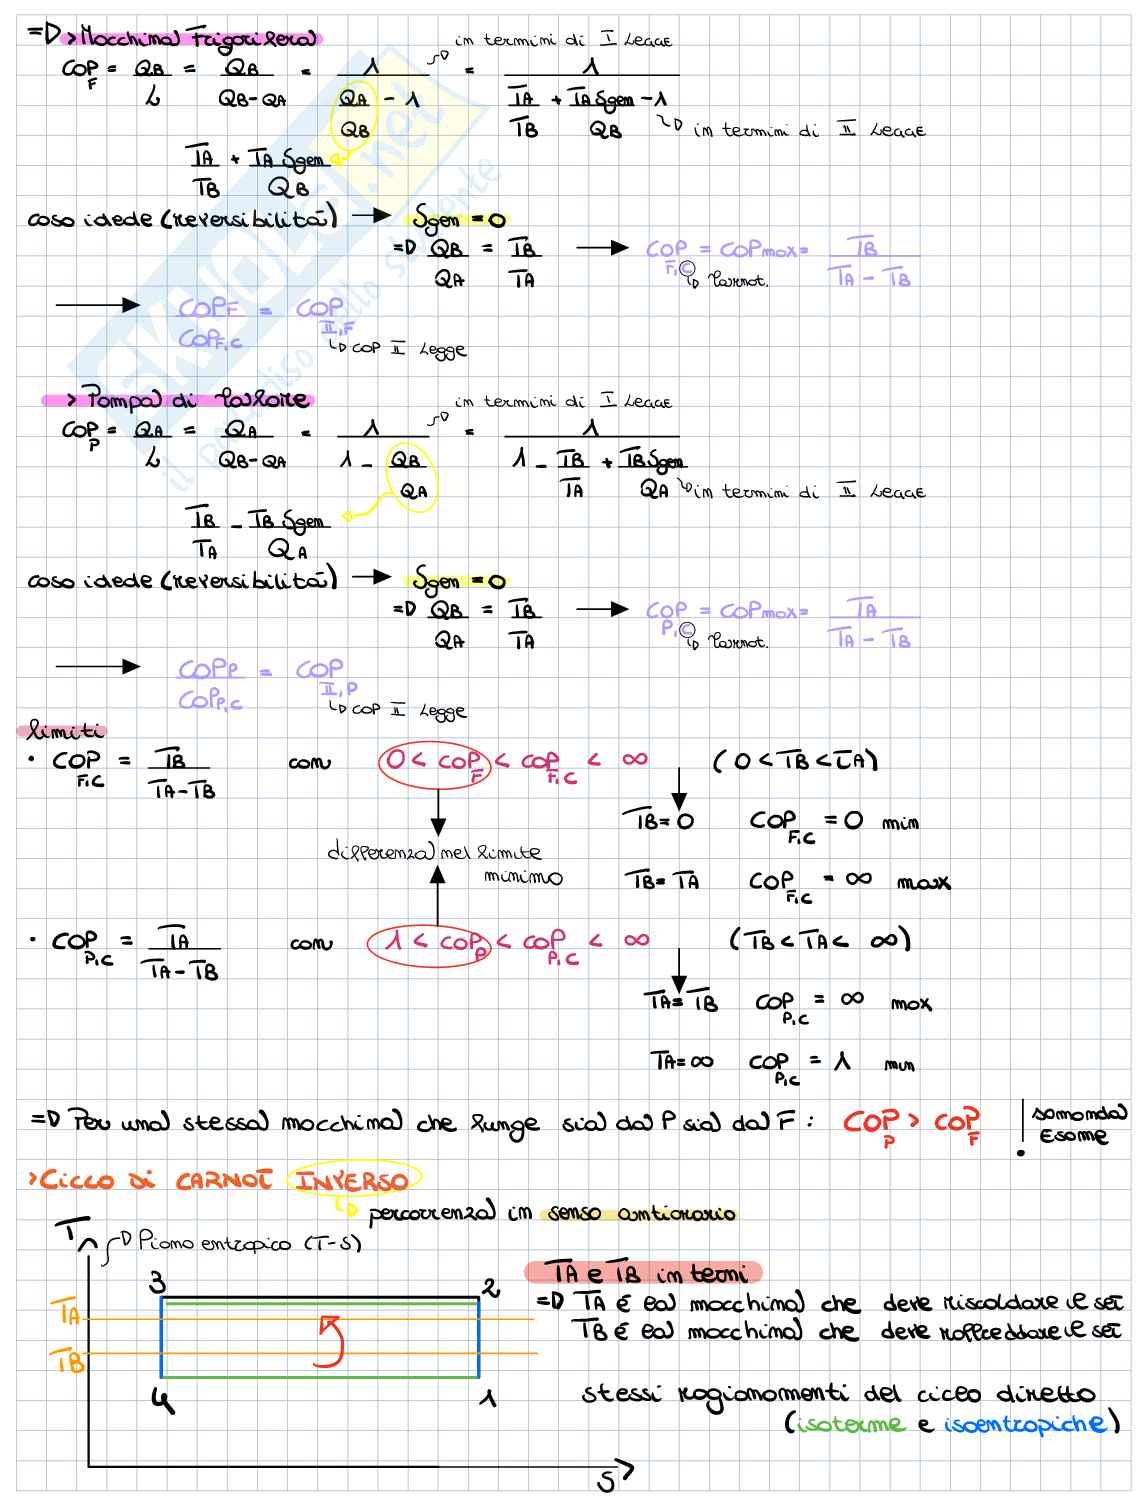 =D > Macchina Frigorifera
in termini di I Legge
COP_F = QB/L = QB/(QB-QA) = 1/(QA/QB - 1) = 1/(TA/TB + TA Sgen/QB - 1)
in termini di II Legge
TA/TB + TA Sgen/QB
caso ideale (reversibilità) → Sgen = 0
=D QB/QA = TB/TA → COP_F,C = COPmax = TB/(TA - TB)
Carnot.
→ COP_F/COP_F,C = COP_II,F
COP II Legge
> Pompa di Calore
in termini di I Legge
COP_P = QA/L = QA/(QB-QA) = 1/(1 - QB/QA) = 1/(1 - TB/TA + TB Sgen/QA)
in termini di II Legge
TB/TA - TB Sgen/QA
caso ideale (reversibilità) → Sgen = 0
=D QB/QA = TB/TA → COP_P,C = COPmax = TA/(TA - TB)
Carnot.
→ COP_P/COP_P,C = COP_II,P
COP II Legge
limiti
• COP_F,C = TB/(TA-TB) con 0 < COP_F < COP_F,C < ∞ (0 < TB < TA)
TB = 0 COP_F,C = 0 min
differenza nel limite
minimo
TB = TA COP_F,C = ∞ max
• COP_P,C = TA/(TA-TB) con 1 < COP_P < COP_P,C < ∞ (TB < TA < ∞)
TA = TB COP_P,C = ∞ max
TA = ∞ COP_P,C = 1 min
=D Per una stessa macchina che funge sia da P sia da F: COP_P > COP_F ! domanda
Esame
> Ciclo di CARNOT INVERSO
percorrenza in senso antiorario
T
Piano entropico (T-S)
3
2
TA
TB
4
1
S
TA e TB interni
=D TA è la macchina che deve riscaldare il set
TB è la macchina che deve raffreddare il set
stessi ragionamenti del ciclo diretto
(isoterme e isoentropiche)
SKUOLA.net
il paradiso dello studente